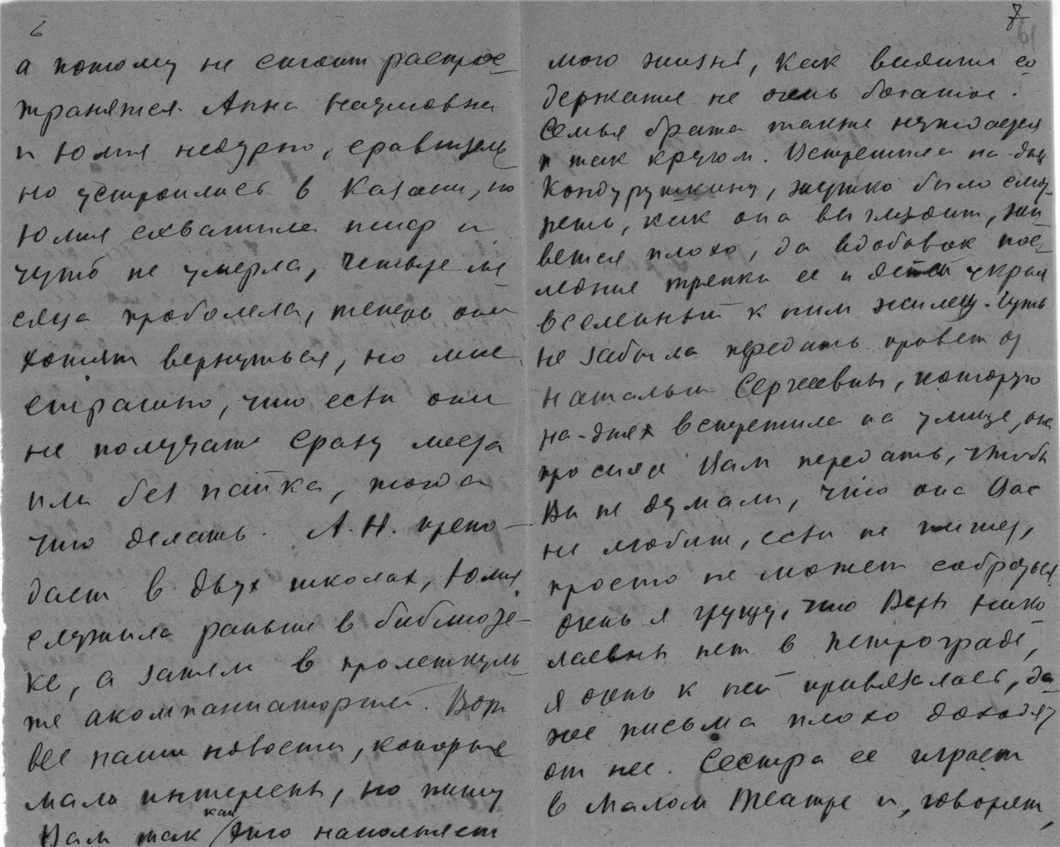 6
а потому не стоит распрос-
траняться. Анна Наумовна
и Юлия недурно, сравнитель
но устроились в Казани, но
Юлия схватила тиф и
чуть не умерла, четыре ме
сяца проболела, теперь они
хотят вернуться, но мне
страшно, что если они
не получат сразу места
или без пайка, тогда
что делать. А.Н. препо-
дает в двух школах, Юлия
служила раньше в библиоте-
ке, а затем в пролеткуль
те акомпаниаторшей. Вот
все наши новости, которые
мало интересны, но пишу
Вам так как это наполняет
7
мою жизнь, как видите со
держание не очень богатое.
Семья брата также нуждается
и так кругом. Встретила на-днях
Кондурушкину, жутко было смо-
треть, как она выглядит, жи
вется плохо, да вдобавок пос-
ледние тряпки ее и детей украл
вселенный к ним жилец. Чуть
не забыла передать привет от
Натальи Сергеевны, которую
на-днях встретила на улице, она
просила Вам передать, чтобы
Вы не думали, что она Вас
не любит, если не пишет,
просто не может собраться.
Очень я грущу, что Веры Нико
лаевны нет в Петрограде,
я очень к ней привязалась, да
же письма плохо доходят
от нее. Сестра ее играет
в Малом Театре и, говорят,